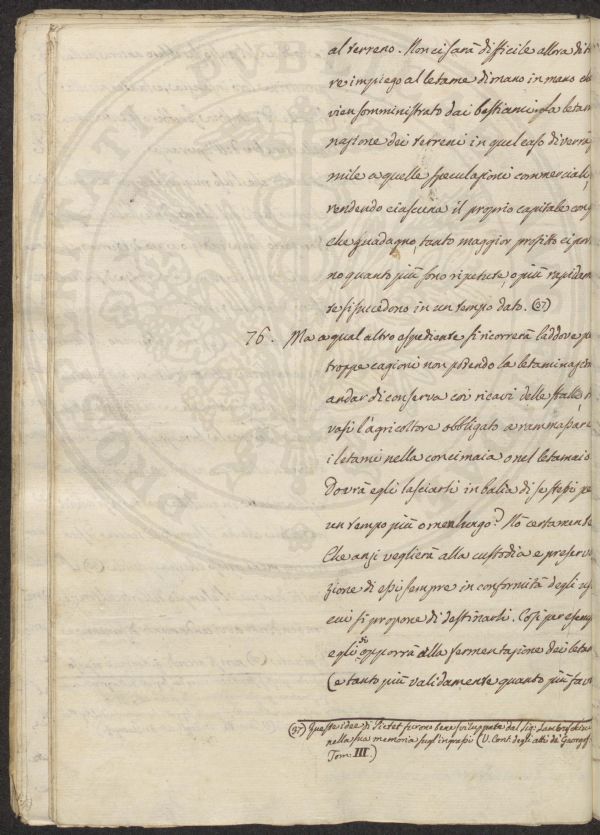 al terreno. Non ci sarà difficile allora di tr
re impiego al letame di mano in mano che
vien somministrato dai bestiami. La letam
nazione dei terreni in quel caso diverrà
mile a quelle speculazioni commerciali,
rendendo ciascuna il proprio capitale con q
che guadagno, tanto maggior profitto ci por
no quanto più sono ripetute, o più rapidam
te si succedono in un tempo dato. (37)
76. Ma a qual altro espediente si ricorrerà laddove pe
troppe cagioni non potendo la letaminazion
andar di conserva coi ricavi delle stalle, t
vasi l'agricoltore obbligato a rammassare
i letami nella concimaia o nel letamaio
Dovrà egli lasciarli in balia di se stessi pe
un tempo più o men lungo? Nò certamente
Che anzi veglierà alla custodia e preserva
zione di essi sempre in conformità degli usi
cui si propone di destinarli. Così per esemp
egli si opporrà alla fermentazione dei letam
(e tanto più validamente quanto più favo
(37) Queste idee di Pictet furono bene sviluppate dal Sig.
nella sua memoria sugl'ingrassi (V. Cont. degli atti de' Georgof.
Tom: III.)